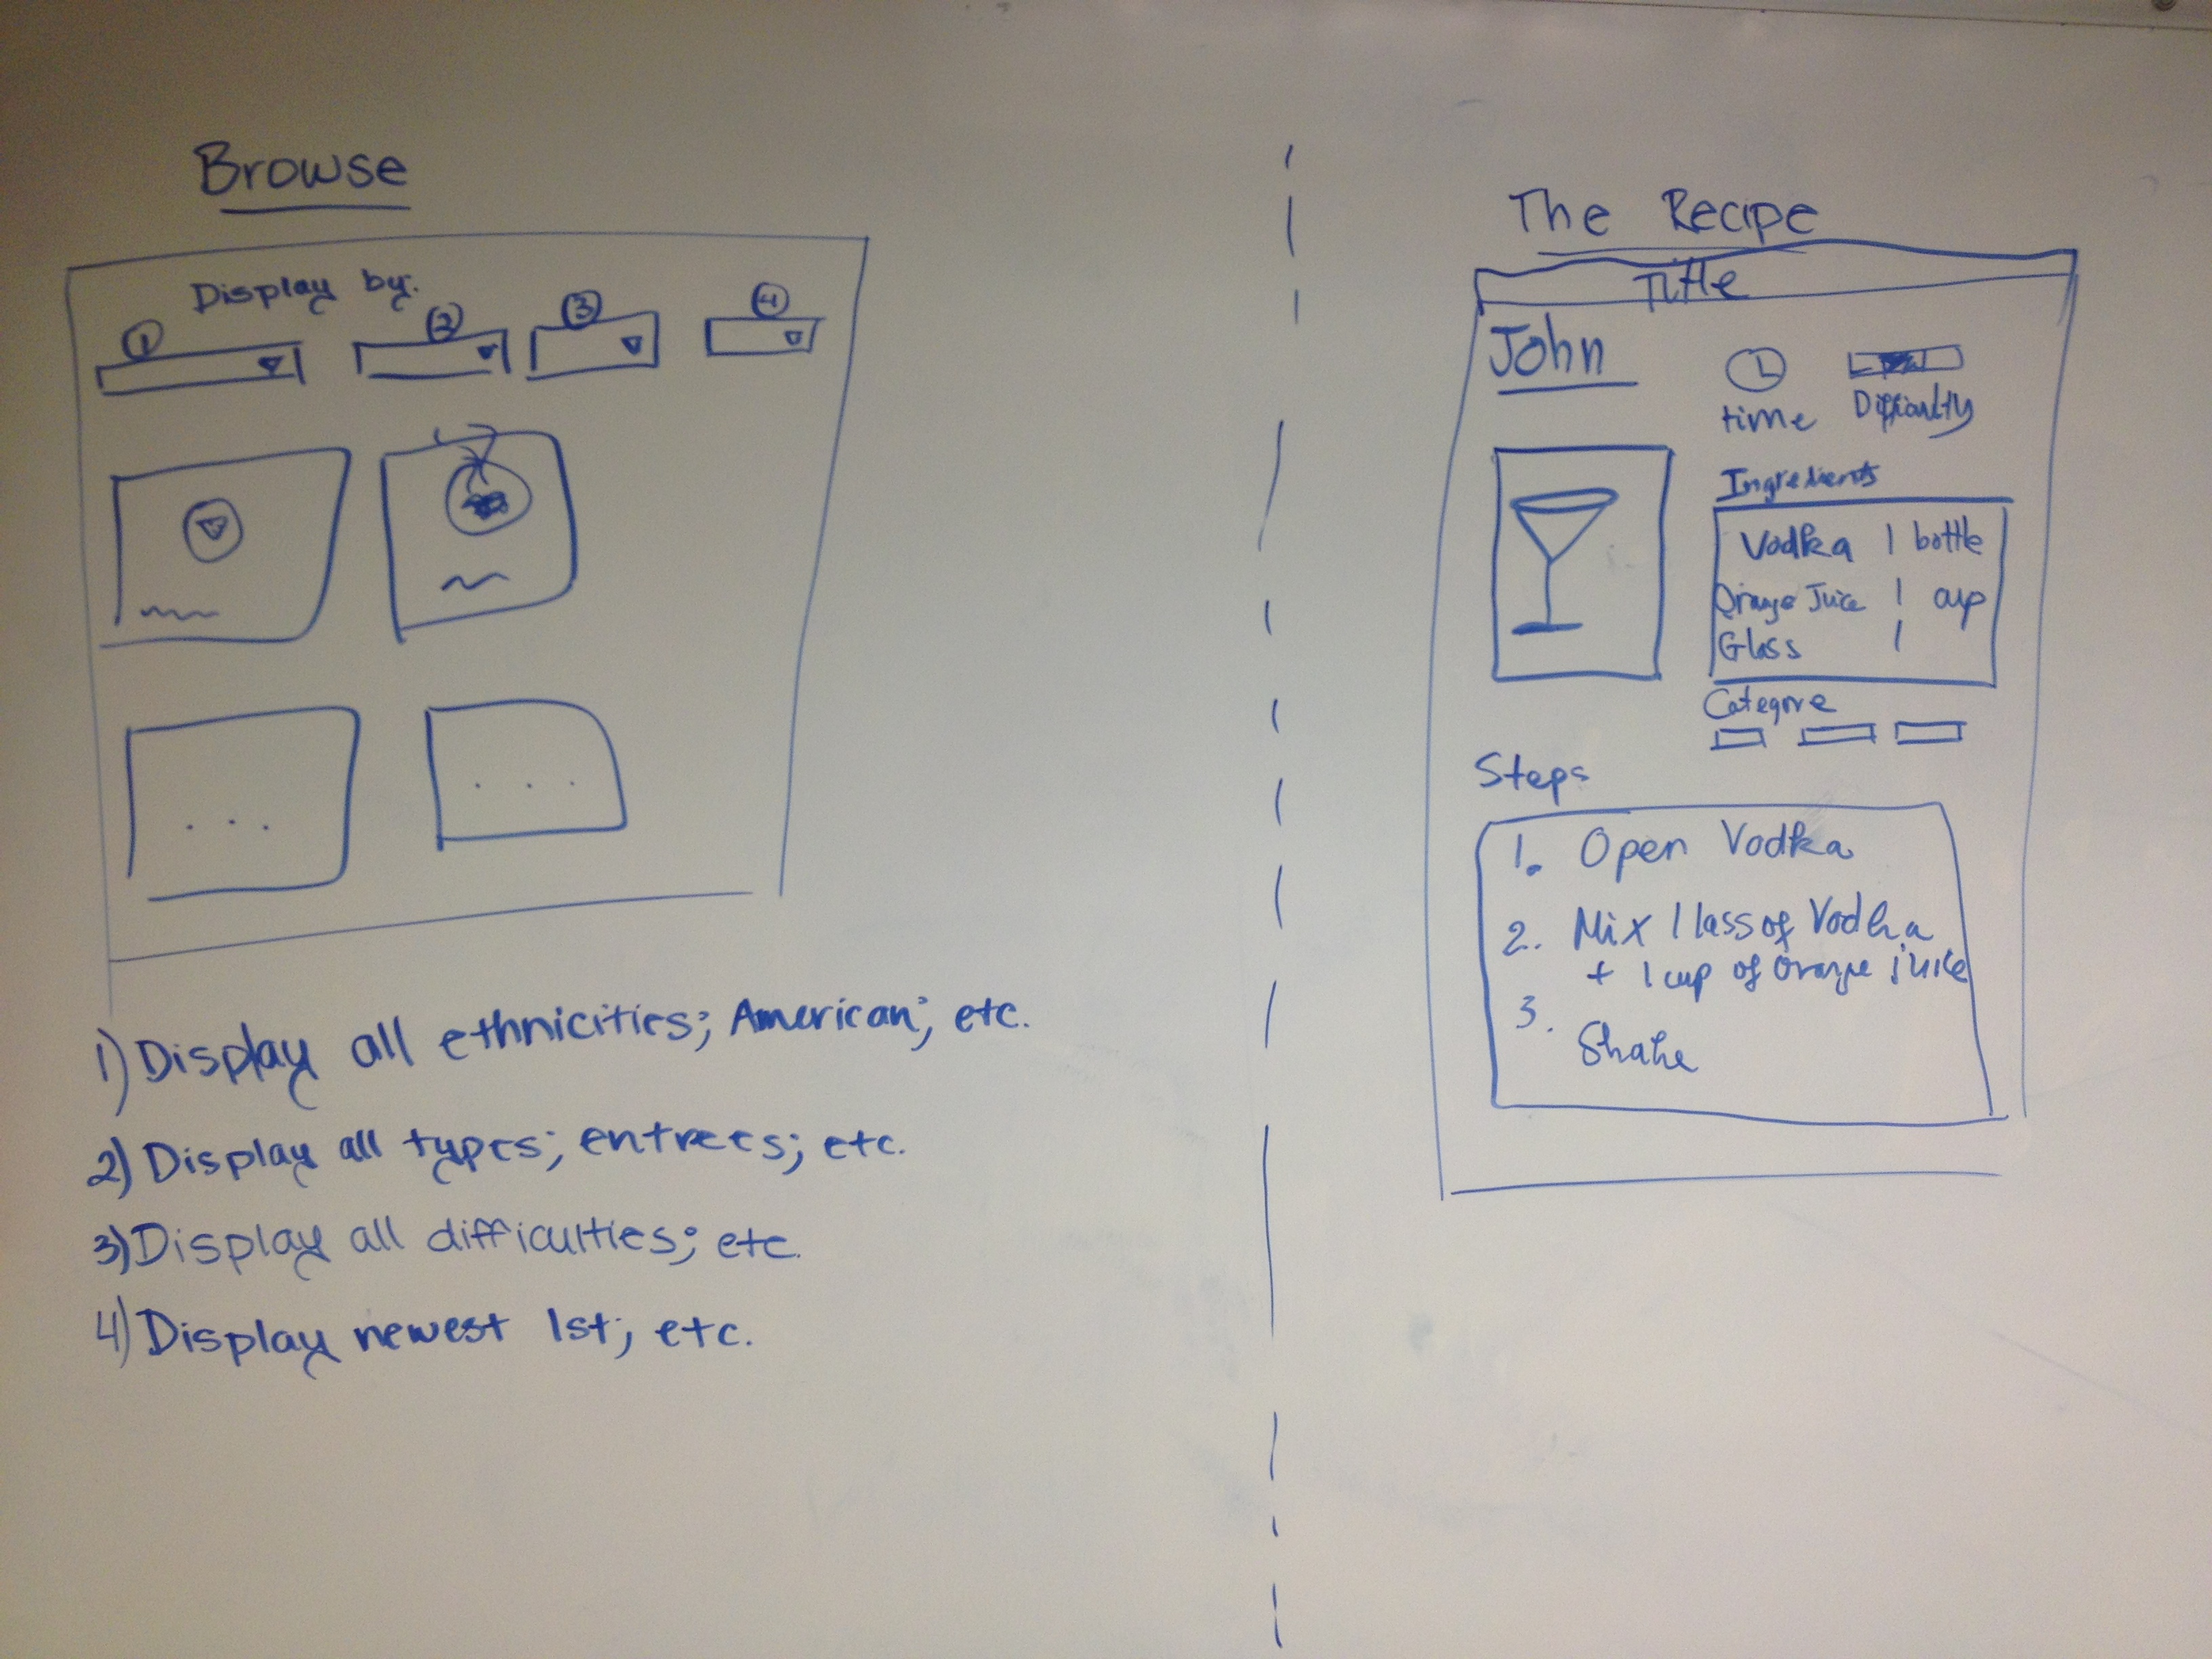 Browse
Display by:
1 2 3 4
1) Display all ethnicities; American; etc.
2) Display all types; entrees; etc.
3) Display all difficulties; etc.
4) Display newest 1st; etc.
The Recipe
Title
John
time Difficulty
Ingredients
Vodka 1 bottle
Orange Juice 1 cup
Glass 1
Categore
Steps
1. Open Vodka
2. Mix 1 lass of Vodka
+ 1 cup of Orange juice
3.
Shake